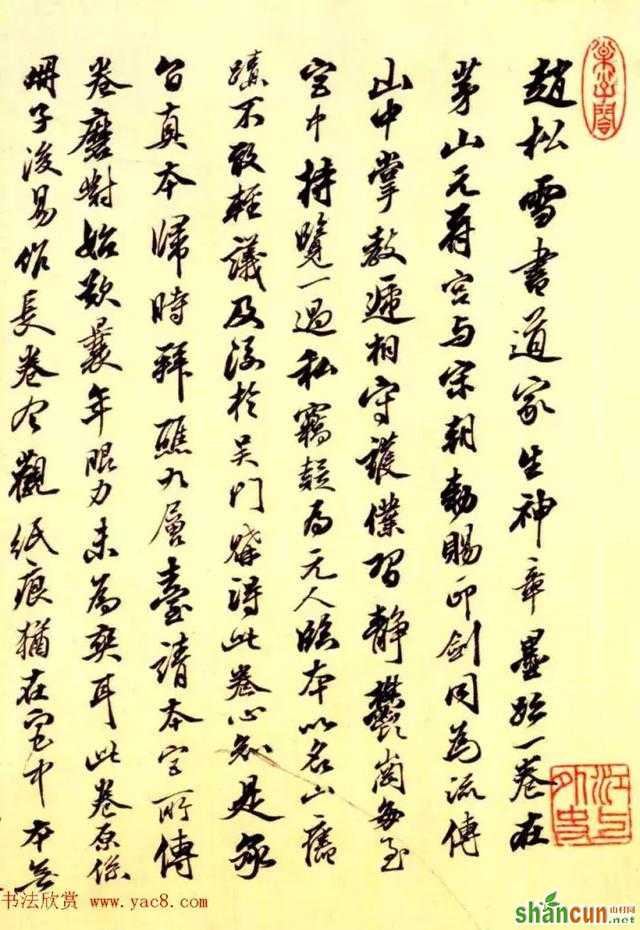 赵松雪书道家生神章墨迹一卷在
茅山元符宫与宋朝勅賜印劍同為流傳
山中掌教遞相守護僕習静欝崗每至
宫中持覽一過私竊疑為元人臨本以名山旧
蹟不敢輕議及後於吴門購得此卷心知是
白真本歸時拜醮九層臺請本宫所傳
卷磨對始欺曩年眼力未為爽耳此卷原係
冊子後易作長卷今觀紙痕猶在宫中本無
书法欣赏 www.yac8.com
shancun 山村网
.net